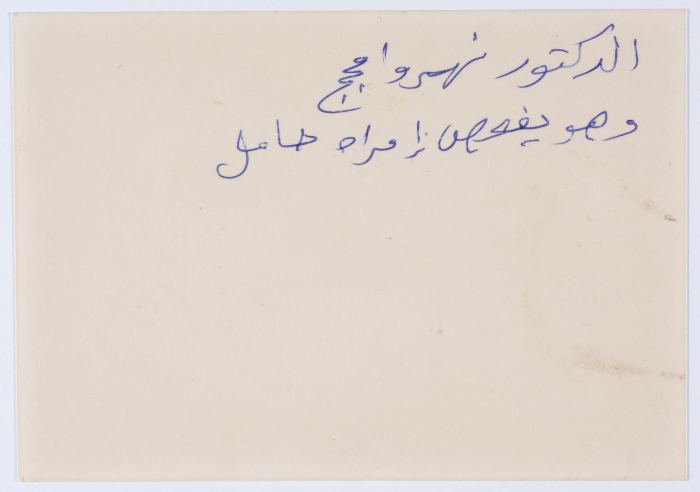 الدكتور نهرو امجج
وهو يفحص إمراه حامل